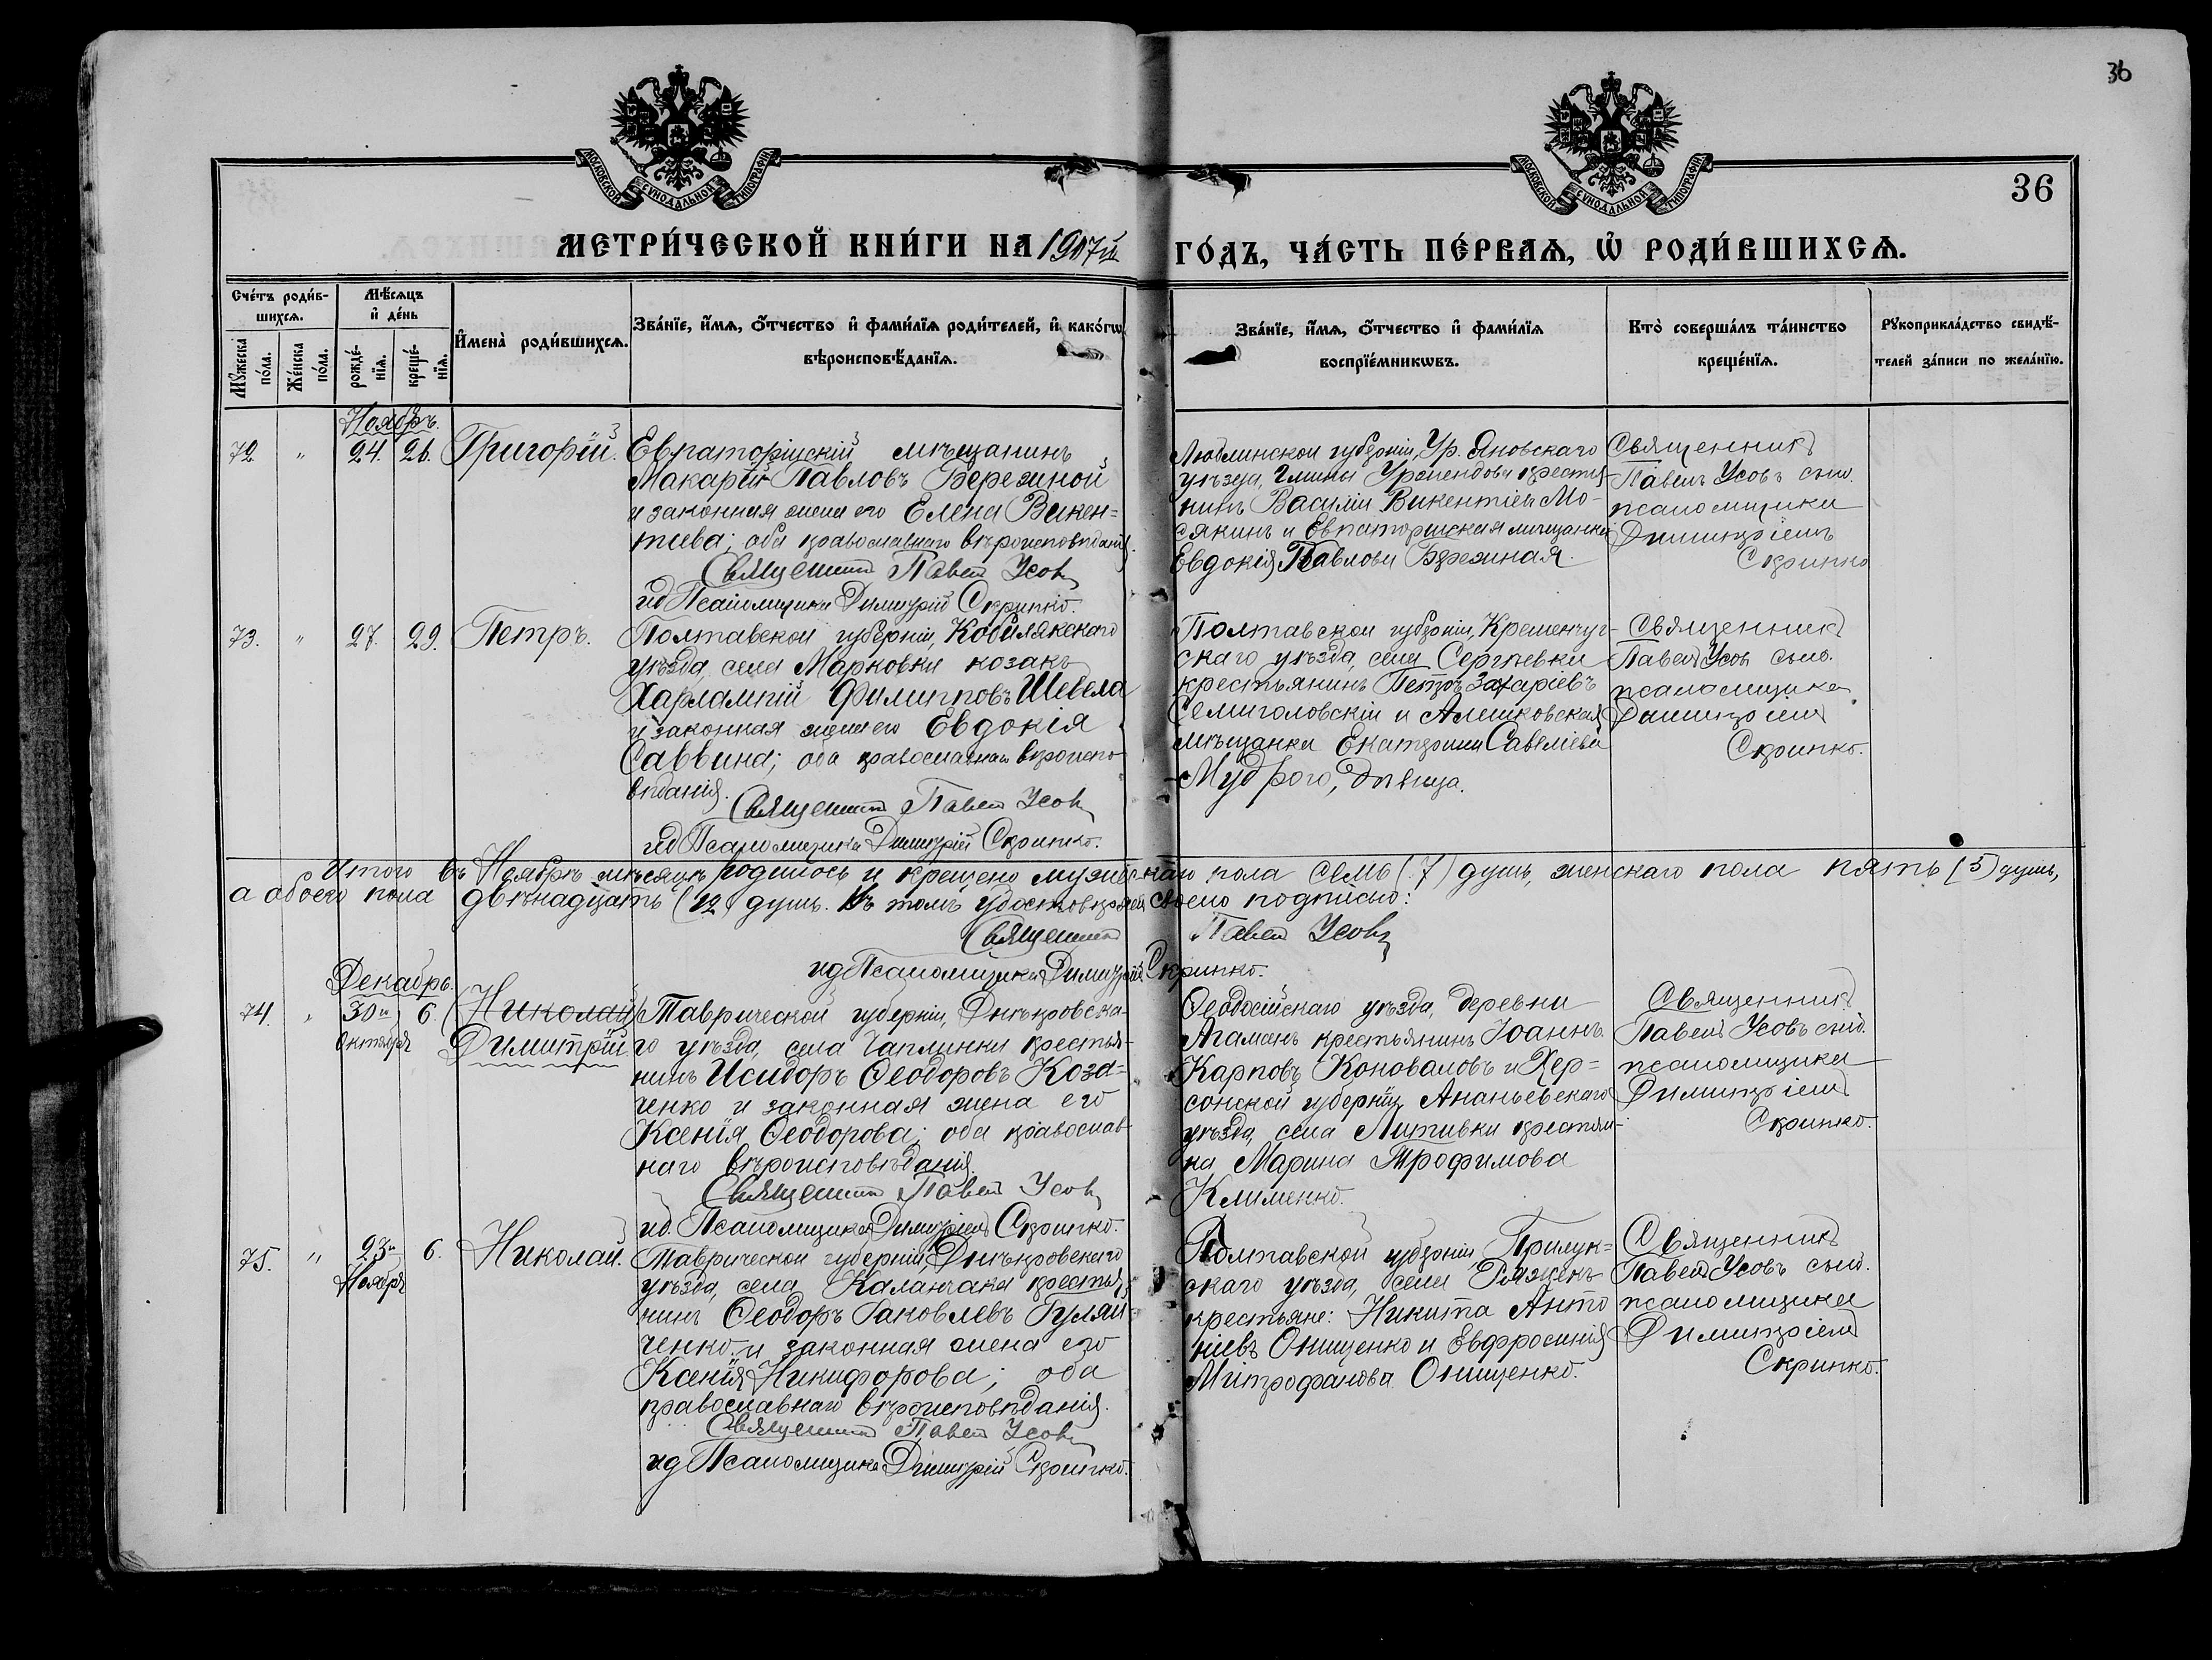 36
МОСКОВСКОЙ СѴНОДАЛЬНОЙ ТИПОГРАФІИ
МОСКОВСКОЙ СѴНОДАЛЬНОЙ ТИПОГРАФІИ
36
МЕТРИ́ЧЕСКОЙ КНИ́ГИ НА 1907й ГО́ДЪ, ЧА́СТЬ ПЕ́РВАѦ, Ѡ҆ РОДИ́ВШИХСѦ.
Сче́тъ роди́вшихсѧ.
Мꙋ́жеска по́ла.
Же́нска по́ла.
Мѣ́сѧцъ и҆ де́нь
рожде́нїѧ.
креще́нїѧ.
И҆мена̀ роди́вшихсѧ.
Зва́нїе, и҆́мѧ, ѻ҆́тчество и҆ фами́лїѧ роди́телей, и҆ како́гѡ
вѣроисповѣ́данїѧ.
Зва́нїе, и҆́мѧ, ѻ҆́тчество и҆ фами́лїѧ
воспрїе́мникѡвъ.
Кто̀ соверша́лъ та́инство
креще́нїѧ.
Рꙋкоприкла́дство свидѣ́-
телей за́писи по жела́нїю.
Ноябрь.
72 " 24. 26. Григорій.
Евпаторійскій мѣщанинъ
Макарій Павловъ Березиной
и законная жена его Елена Викен=
тиева; оба православнаго вѣроисповѣданія.
Священникъ Павелъ Усовъ
ид Псаломщика Димитрій Скрипко.
Люблинской губерніи, Яновскаго
уѣзда, гмины крестья-
нинъ Василій Викентіевъ Мо-
сякинъ и Евпаторійская мѣщанка
Евдокія Павлова Березиная.
Священникъ
Павелъ Усовъ съ ид.
псаломщика
Димитріемъ
Скрипко
73. " 27. 29. Петръ.
Полтавской губерніи, Кобилякскаго
уѣзда, села Марковки козакъ
Харлампій Филипповъ Шевела
и законная жена его Евдокія
Саввина; оба православнаго вѣроиспо-
вѣданія.
Священникъ Павелъ Усовъ
ид Псаломщика Димитрій Скрипко.
Полтавской губерніи, Кременчуг-
скаго уѣзда, села Сергѣевки
крестьянинъ Петръ Захаріевъ
Семиголовскій и Алешковская
мѣщанка Екатерина Савеліева
Мудрого, дѣвица.
Священникъ
Павелъ Усовъ съ ид.
псаломщика
Димитріемъ
Скрипко.
Итого въ Ноябрѣ мѣсяцѣ родилось и крещено мужескаго пола семь (7) душъ, женскаго пола пять (5) душъ,
а обоего пола двѣнадцать (12) душъ. Въ томъ удостовѣряемъ своею подписью:
Священникъ Павелъ Усовъ
ид Псаломщика Димитрій Скрипко.
Декабрь.
74. " 30го Октября 6. (Николай)
Димитрій.
Таврической губерніи, Днѣпровска-
го уѣзда, села Чаплинки крестья-
нинъ Исидоръ Ѳеодоровъ Коза-
ченко и законная жена его
Ксенія Ѳеодорова; оба православ-
наго вѣроисповѣданія.
Священникъ Павелъ Усовъ
ид. Псаломщика Димитрій Скрипко.
Ѳеодосійскаго уѣзда, деревни
Агаманъ крестьянинъ Іоаннъ
Карповъ Коноваловъ и Хер=
сонской губерніи, Ананьевскаго
уѣзда, села Литивки крестьян-
ка Марина Трофимова
Клименко.
Священникъ
Павелъ Усовъ съ ид.
псаломщика
Димитріемъ
Скрипко.
75. " 23го Ноября 6. Николай.
Таврической губерніи, Днѣпровскаго
уѣзда, села Каланчака крестья-
нинъ Ѳеодоръ Іаковлевъ Гуляй
ченко и законная жена его
Ксенія Никифорова; оба
православнаго вѣроисповѣданія.
Священникъ Павелъ Усовъ
ид Псаломщика Димитрій Скрипко.
Полтавской губерніи, Прилук=
скаго уѣзда, села
крестьяне: Никита Анто
ніевъ Онищенко и Евфросинія
Митрофанова Онищенко.
Священникъ
Павелъ Усовъ съ ид.
псаломщика
Димитріемъ
Скрипко.